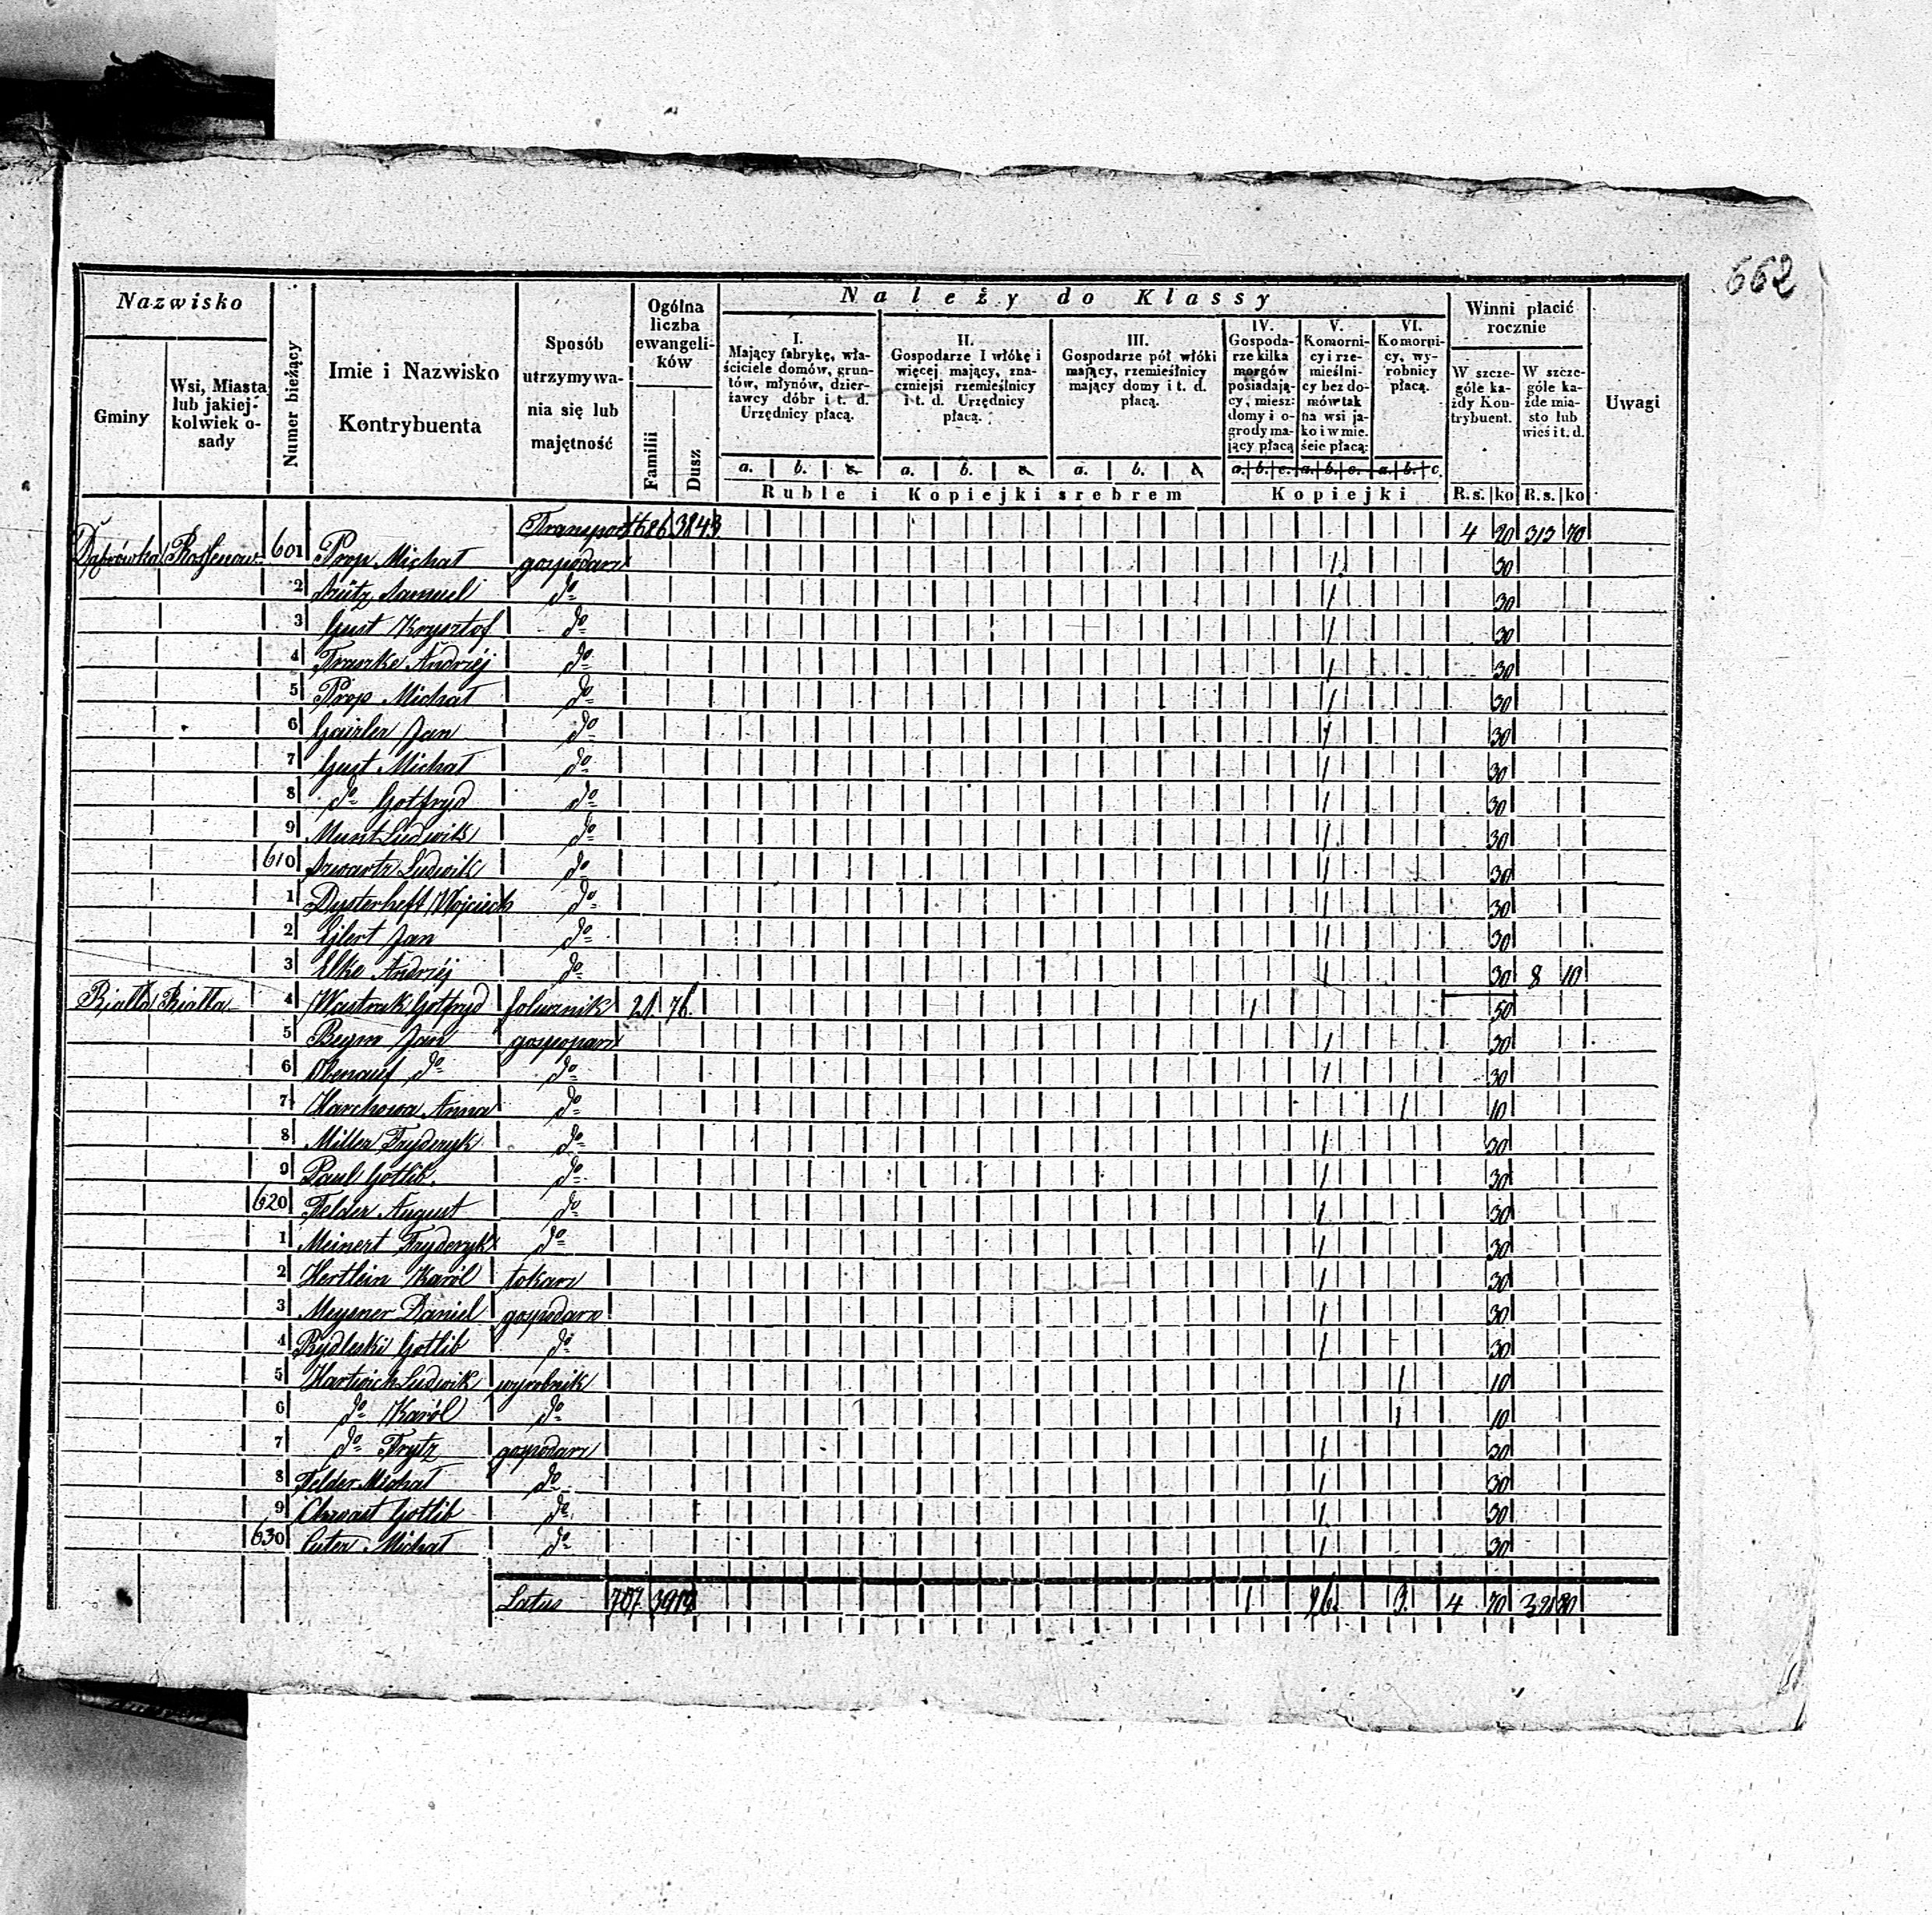 662
Nazwisko
Gminy
Wsi, Miasta lub jakiejkolwiek osady
Numer bieżący
Imie i Nazwisko Kontrybuenta
Sposób utrzymywania się lub majętność
Ogólna liczba ewangelików
Familii
Dusz
Należy do Klassy
I. Mający fabrykę, właściciele domów, gruntów, młynów, dzierżawcy dóbr i t. d. Urzędnicy płacą.
II. Gospodarze I włókę i więcej mający, znaczniejsi rzemieślnicy i t. d. Urzędnicy płacą.
III. Gospodarze pół włóki mający, rzemieślnicy mający domy i t. d. płacą.
IV. Gospodarze kilka morgów posiadający, miesz: domy i ogrody mający płacą
V. Komornicy i rzemieślnicy bez domów tak na wsi jako i w mieście płacą:
VI. Komornicy, wyrobnicy płacą.
Winni płacić rocznie
W szczególe każdy Kontrybuent.
W szczególe każde miasto lub wieś i t. d.
Uwagi
a. b. c. a. b. c. a. b. a. b. c. a. b. c. a. b. c.
Ruble i Kopiejki srebrem
Kopiejki
R.s. ko R.s. ko
Transport 686 3843 4 20 313 70
Dąbrówka 601 Prop Michał gospodarz 1 30
2 Samuel do 1 30
3 Gust Krysztof do 1 30
4 Franke Andrzéj do 1 30
5 Prop Michał do 1 30
6 Jan do 1 30
7 Gust Michał do 1 30
8 do Gotfryd do 1 30
9 Munt Ludwik do 1 30
610 Szwartz Ludwik do 1 30
1 Dysterheft Wojciech do 1 30
2 Jan do 1 30
3 Elke Andrzéj do 1 30 8 10
Biatta Biatta 4 Gotfryd folusznik 21 76 1 50
5 Beym Jan gospodarz 1 30
6 Obenauf do do 1 30
7 Harchowa Anna do 1 10
8 Miller Fryderyk do 1 30
9 Paul Gotlib do 1 30
620 Felder August do 1 30
1 Meinert Fryderyk do 1 30
2 Hertlein Karól tokarz 1 30
3 Meysner Daniel gospodarz 1 30
4 Gotlib do 1 30
5 Hartwich Ludwik wyrobnik 1 10
6 do Karól do 1 10
7 do Frytz gospodarz 1 30
8 Felder Michał do 1 30
9 Gotlib do 1 30
630 Michał do 1 30
Latus 707 3919 1 26 3. 4 70 321 80